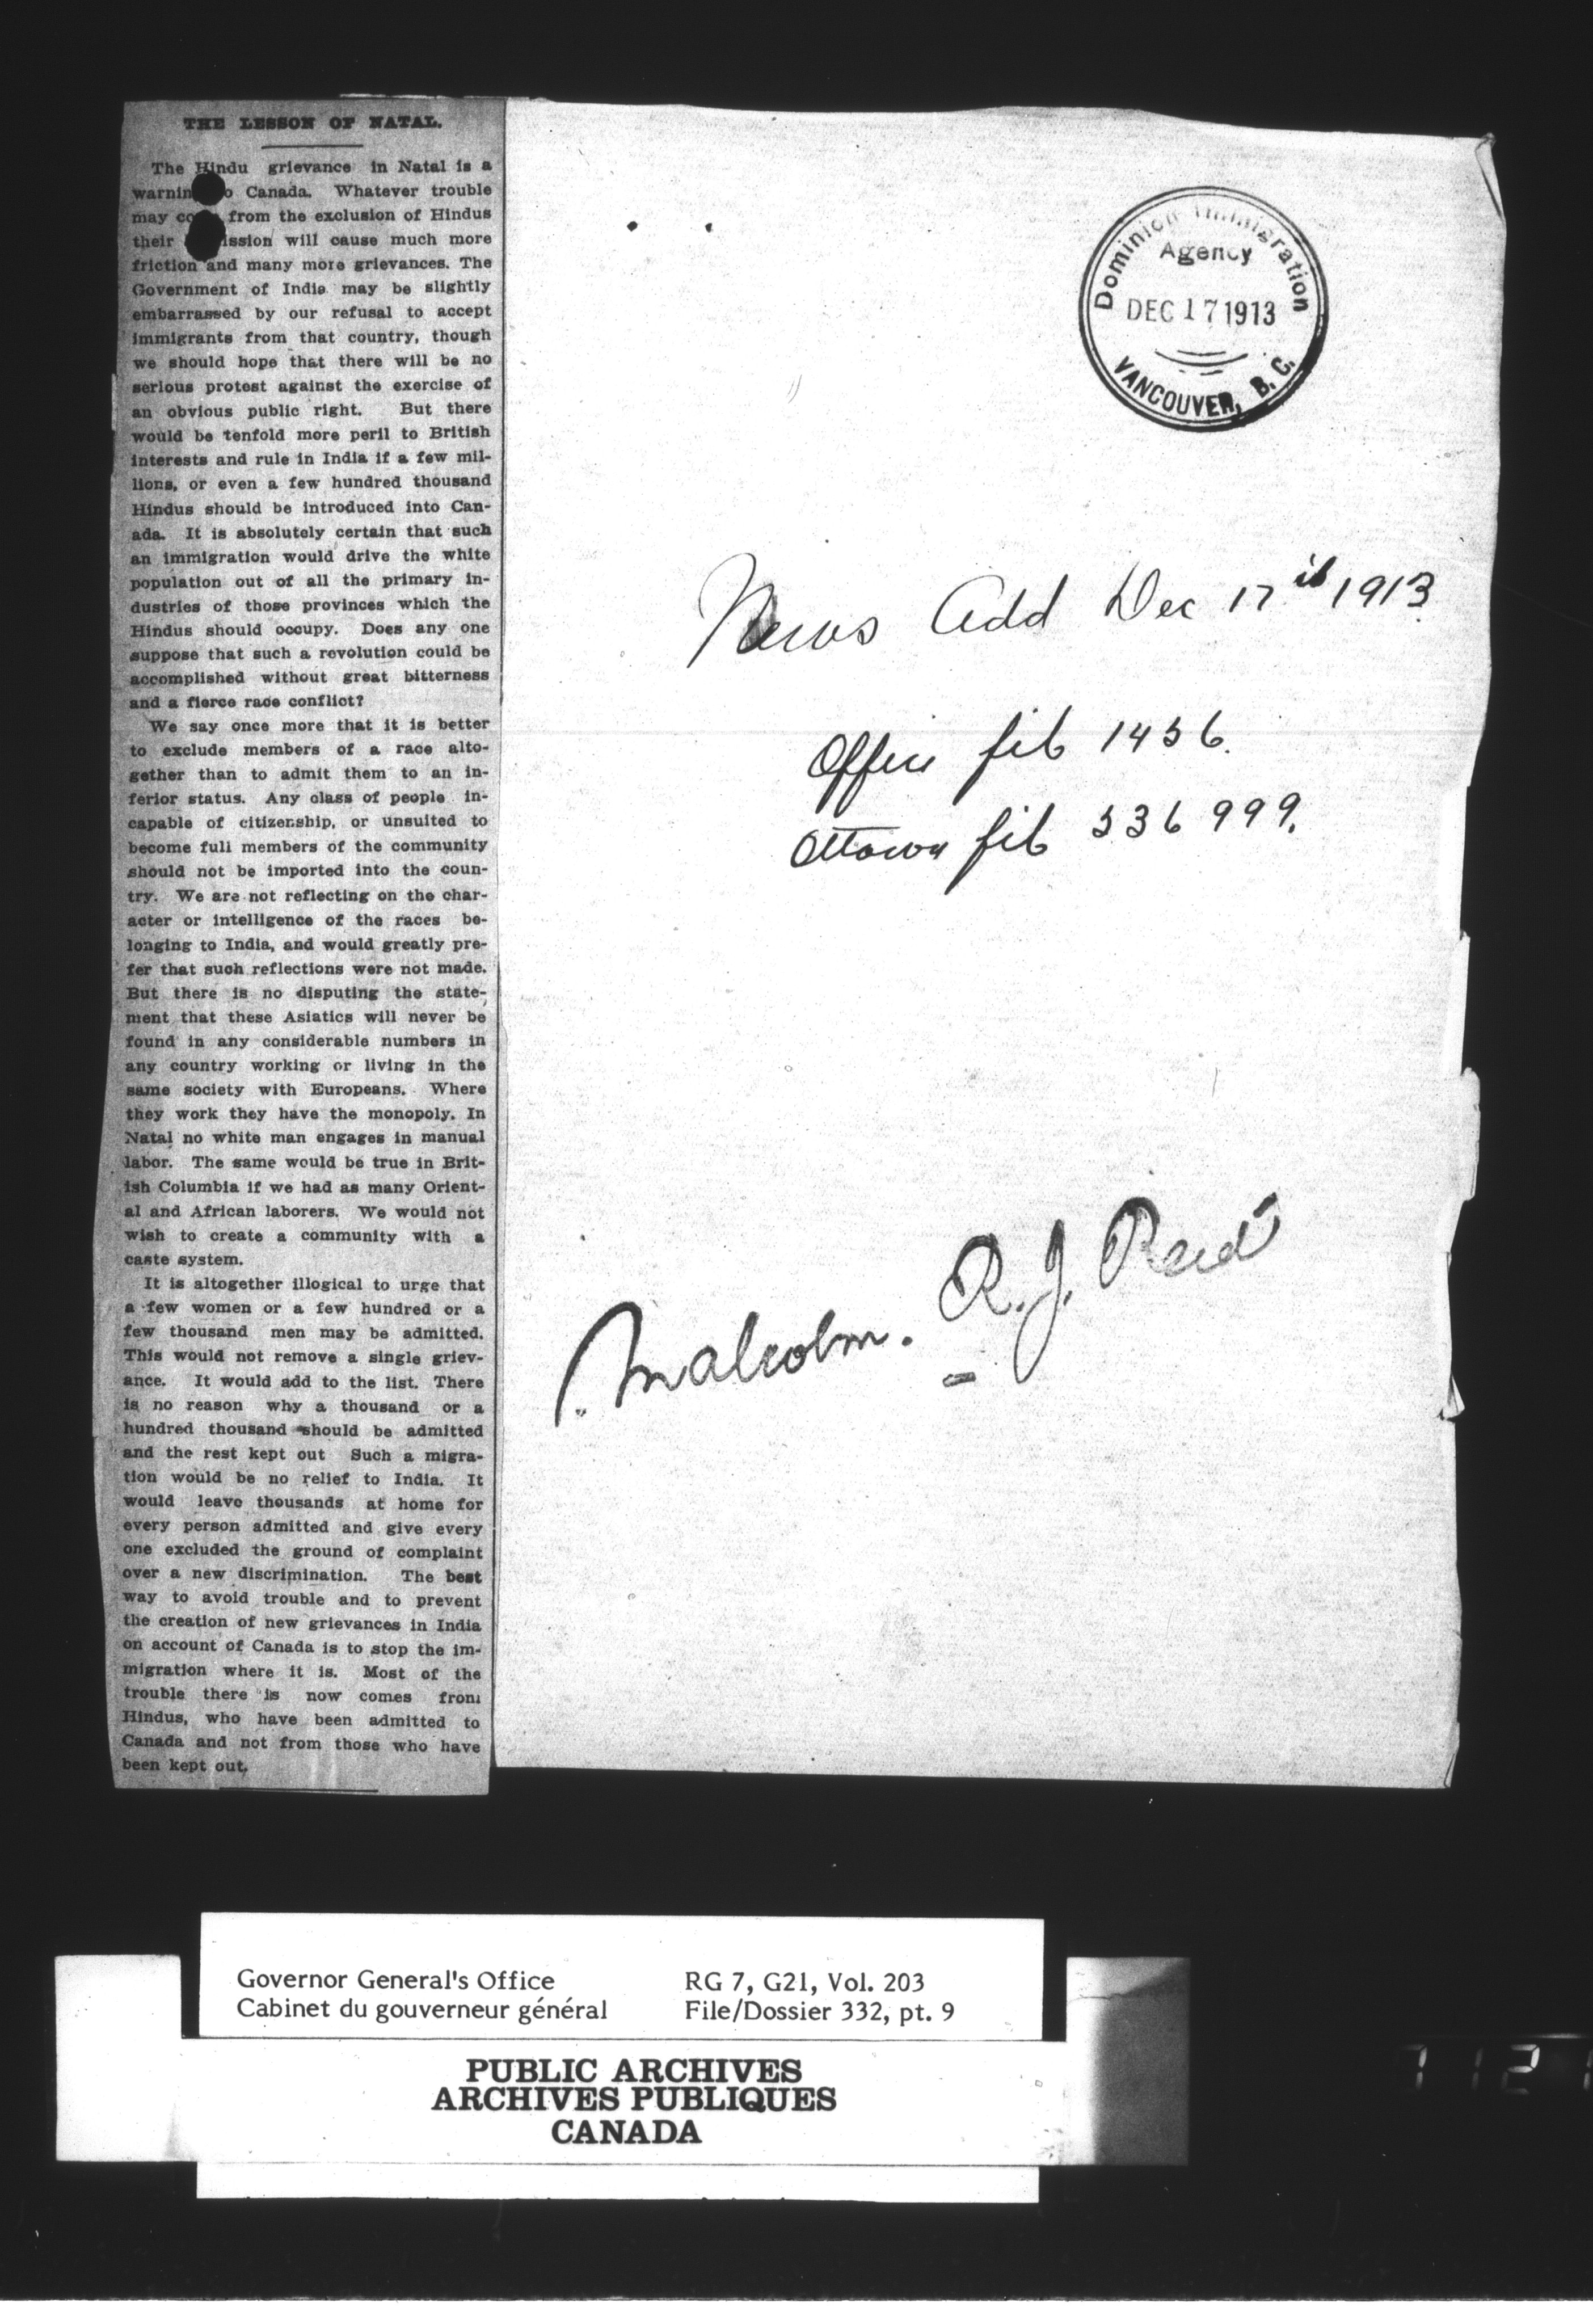 THE LESSON OF NATAL.
The Hindu grievance in Natal is a
warnin o Canada. Whatever trouble
may co from the exclusion of Hindus
their ission will cause much more
friction and many more grievances. The
Government of India may be slightly
embarrassed by our refusal to accept
immigrants from that country, though
we should hope that there will be no
serious protest against the exercise of
an obvious public right. But there
would be tenfold more peril to British
interests and rule in India if a few mil-
lions, or even a few hundred thousand
Hindus should be introduced into Can-
ada. It is absolutely certain that such
an immigration would drive the white
population out of all the primary in-
dustries of those provinces which the
Hindus should occupy. Does any one
suppose that such a revolution could be
accomplished without great bitterness
and a fierce race conflict?
We say once more that it is better
to exclude members of a race alto-
gether than to admit them to an in-
ferior status. Any class of people in-
capable of citizenship, or unsuited to
become full members of the community
should not be imported into the coun-
try. We are not reflecting on the char-
acter or intelligence of the races be-
longing to India, and would greatly pre-
fer that such reflections were not made.
But there is no disputing the state-
ment that these Asiatics will never be
found in any considerable numbers in
any country working or living in the
same society with Europeans. Where
they work they have the monopoly. In
Natal no white man engages in manual
labor. The same would be true in Brit-
ish Columbia if we had as many Orient-
al and African laborers. We would not
wish to create a community with a
caste system.
It is altogether illogical to urge that
a few women or a few hundred or a
few thousand men may be admitted.
This would not remove a single griev-
ance. It would add to the list. There
is no reason why a thousand or a
hundred thousand should be admitted
and the rest kept out Such a migra-
tion would be no relief to India. It
would leave thousands at home for
every person admitted and give every
one excluded the ground of complaint
over a new discrimination. The best
way to avoid trouble and to prevent
the creation of new grievances in India
on account of Canada is to stop the im-
migration where it is. Most of the
trouble there is now comes from
Hindus, who have been admitted to
Canada and not from those who have
been kept out.
Dominion Immigration
Agency
DEC 17 1913
VANCOUVER, B. C.
News Add Dec 17th 1913
Office file 1456.
Ottawa file 536999.
Malcolm. R. J. Reid
Governor General's Office
Cabinet du gouverneur général
RG 7, G21, Vol. 203
File/Dossier 332, pt. 9
PUBLIC ARCHIVES
ARCHIVES PUBLIQUES
CANADA